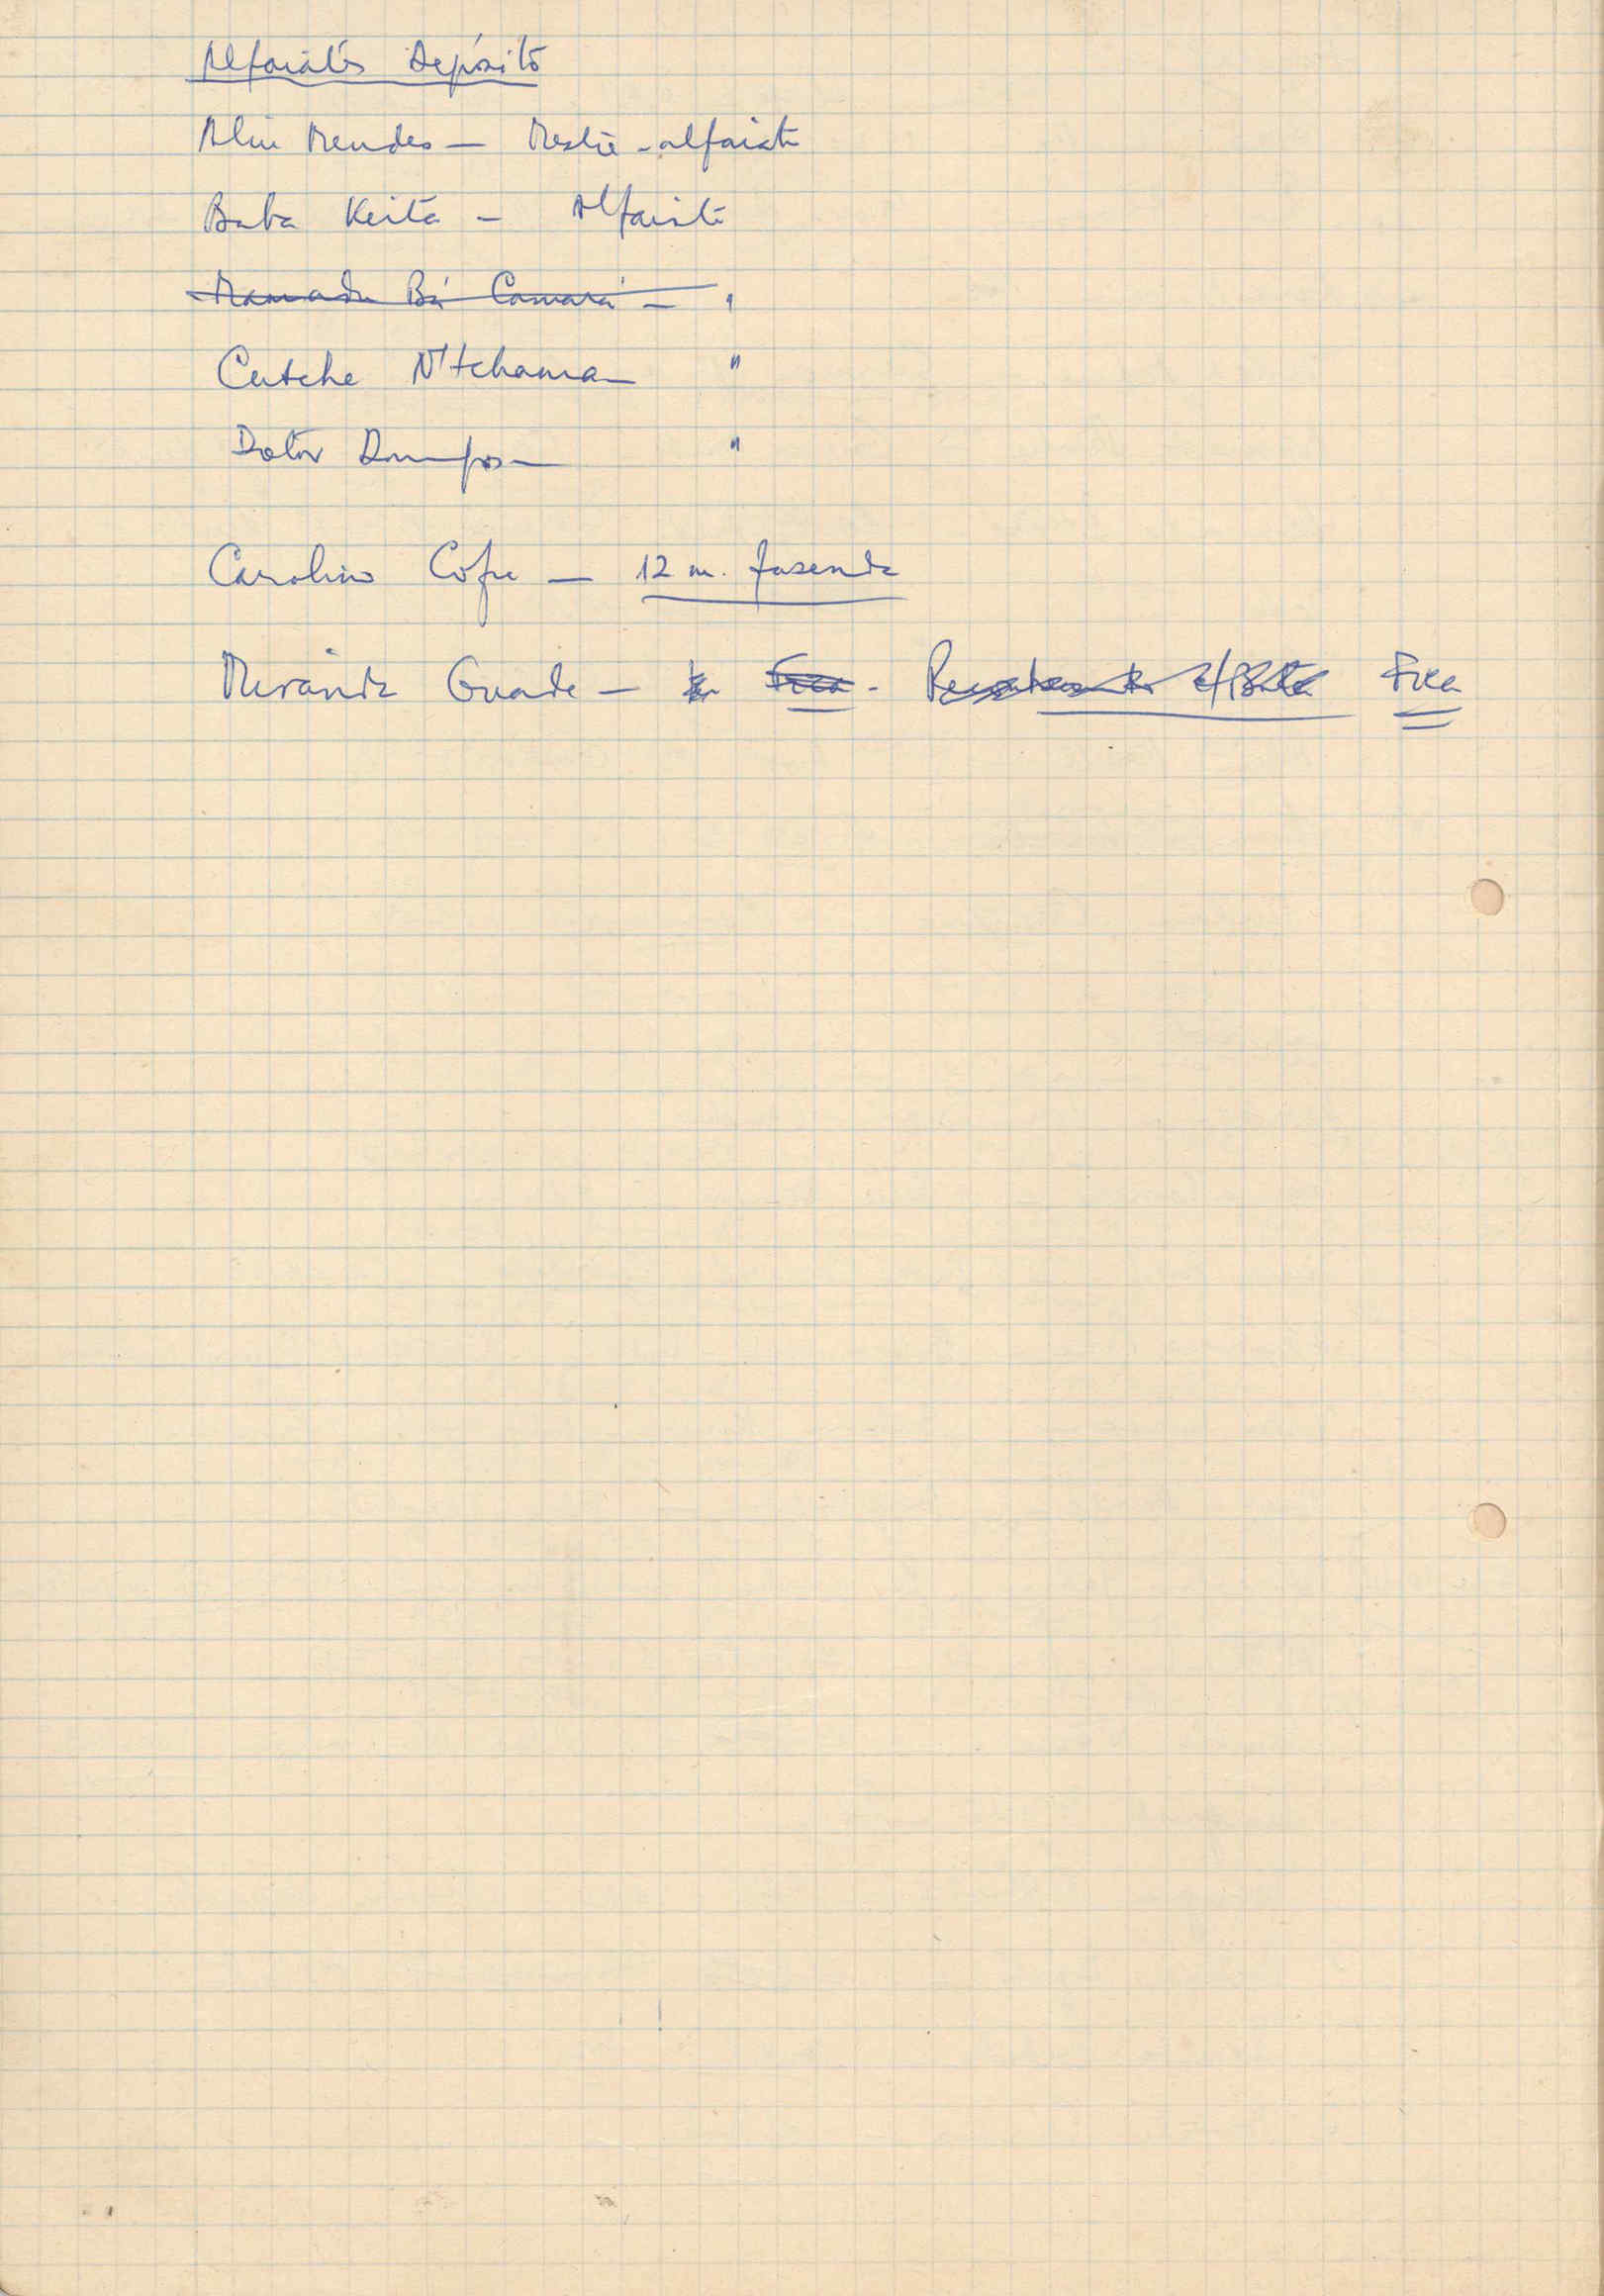 Alfaiates Depósito
Aliu Mendes — Mestre-alfaiate
Baba Keita — Alfaiate
Mamadu Bá Camará — "
Cutche N'tchama "
Dotor
Carolino Cófre — 12 m. fazenda
Miranda Guade — Fica - Fica